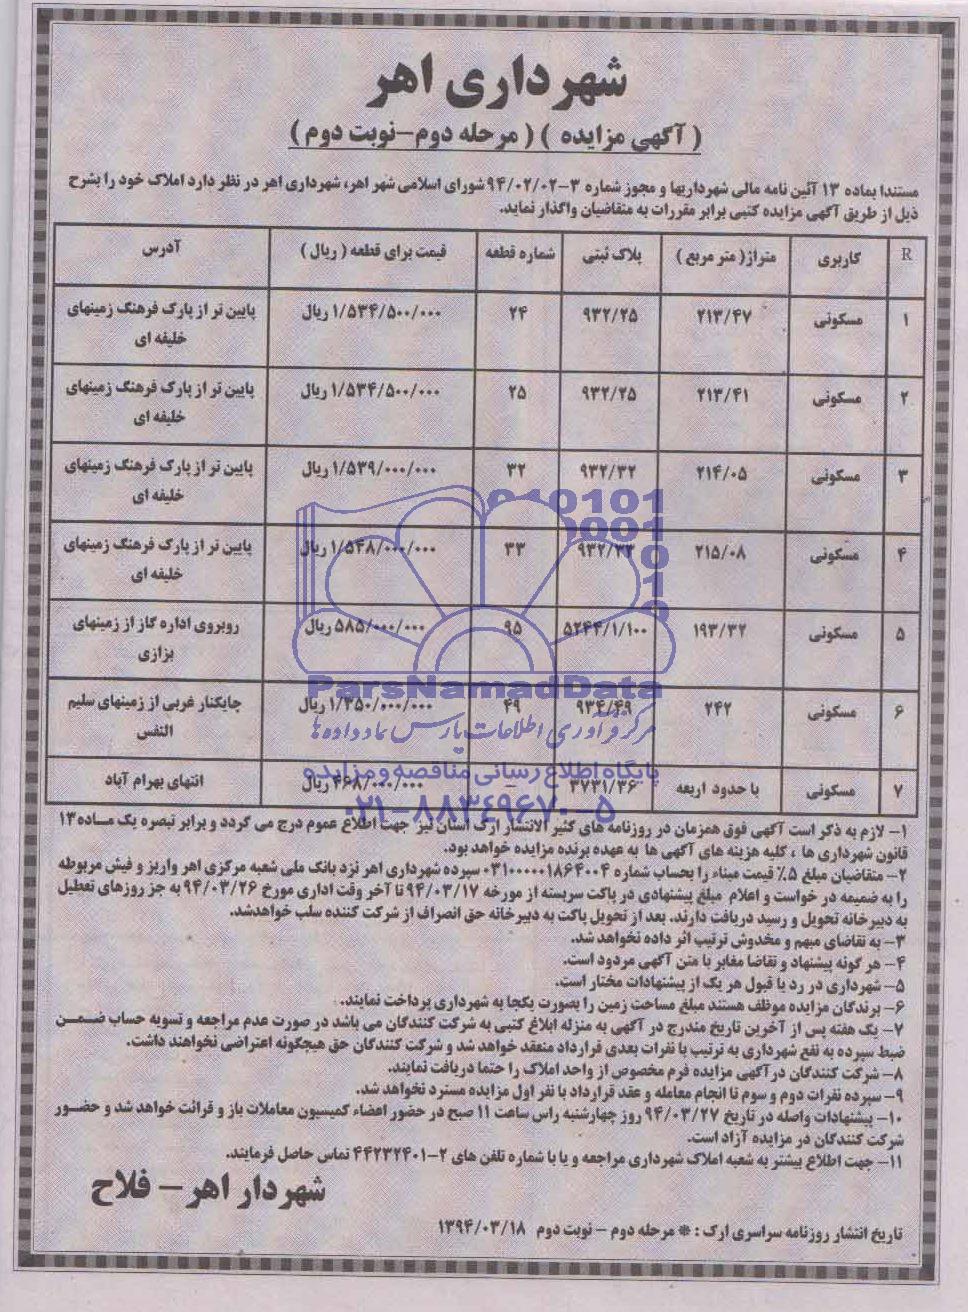 شهرداری اهر
( آگهی مزایده ) ( مرحله دوم-نوبت دوم )
مستندا بماده ۱۳ آئین نامه مالی شهرداریها و مجوز شماره ۳-۹۴/۰۲/۰۲ شورای اسلامی شهر اهر، شهرداری اهر در نظر دارد املاک خود را بشرح
ذیل از طریق آگهی مزایده کتبی برابر مقررات به متقاضیان واگذار نماید.
R کاربری متراژ( متر مربع ) پلاک ثبتی شماره قطعه قیمت برای قطعه ( ریال ) آدرس
۱ مسکونی ۲۱۳/۴۷ ۹۳۲/۲۵ ۲۴ ۱/۵۳۴/۵۰۰/۰۰۰ ریال پایین تر از پارک فرهنگ زمینهای
خلیفه ای
۲ مسکونی ۲۱۳/۴۱ ۹۳۲/۲۵ ۲۵ ۱/۵۳۴/۵۰۰/۰۰۰ ریال پایین تر از پارک فرهنگ زمینهای
خلیفه ای
۳ مسکونی ۲۱۴/۰۵ ۹۳۲/۳۲ ۳۲ ۱/۵۳۹/۰۰۰/۰۰۰ ریال پایین تر از پارک فرهنگ زمینهای
خلیفه ای
۴ مسکونی ۲۱۵/۰۸ ۹۳۲/۳۳ ۳۳ ۱/۵۴۸/۰۰۰/۰۰۰ ریال پایین تر از پارک فرهنگ زمینهای
خلیفه ای
۵ مسکونی ۱۹۳/۳۲ ۵۲۴۴/۱/۱۰۰ ۹۵ ۵۸۵/۰۰۰/۰۰۰ ریال روبروی اداره گاز از زمینهای
بزازی
۶ مسکونی ۲۴۲ ۹۳۴/۴۹ ۴۹ ۱/۳۵۰/۰۰۰/۰۰۰ ریال چایکنار غربی از زمینهای سلیم
النفس
۷ مسکونی با حدود اربعه ۳۷۳۱/۳۶ – ۴۶۸/۰۰۰/۰۰۰ ریال انتهای بهرام آباد
ParsNamadData
مرکز فرآوری اطلاعات پارس نماد داده ها
پایگاه اطلاع رسانی مناقصه و مزایده
۰۲۱-۸۸۳۴۹۶۷۰-۵
۱- لازم به ذکر است آگهی فوق همزمان در روزنامه های کثیر الانتشار ارک استان نیز جهت اطلاع عموم درج می گردد و برابر تبصره یک ماده۱۳
قانون شهرداری ها ، کلیه هزینه های آگهی ها به عهده برنده مزایده خواهد بود.
۲- متقاضیان مبلغ ۵٪ قیمت مبناء را بحساب شماره ۰۳۱۰۰۰۰۰۱۸۶۴۰۰۴ سپرده شهرداری اهر نزد بانک ملی شعبه مرکزی اهر واریز و فیش مربوطه
را به ضمیمه در خواست و اعلام مبلغ پیشنهادی در پاکت سربسته از مورخه ۹۴/۰۳/۱۷ تا آخر وقت اداری مورخ ۹۴/۰۳/۲۶ به جز روزهای تعطیل
به دبیرخانه تحویل و رسید دریافت دارند. بعد از تحویل پاکت به دبیرخانه حق انصراف از شرکت کننده سلب خواهدشد.
۳- به تقاضای مبهم و مخدوش ترتیب اثر داده نخواهد شد.
۴- هر گونه پیشنهاد و تقاضا مغایر با متن آگهی مردود است.
۵- شهرداری در رد یا قبول هر یک از پیشنهادات مختار است.
۶- برندگان مزایده موظف هستند مبلغ مساحت زمین را بصورت یکجا به شهرداری پرداخت نمایند.
۷- یک هفته پس از آخرین تاریخ مندرج در آگهی به منزله ابلاغ کتبی به شرکت کنندگان می باشد در صورت عدم مراجعه و تسویه حساب ضمن
ضبط سپرده به نفع شهرداری به ترتیب با نفرات بعدی قرارداد منعقد خواهد شد و شرکت کنندگان حق هیچگونه اعتراضی نخواهند داشت.
۸- شرکت کنندگان درآگهی مزایده فرم مخصوص از واحد املاک را حتما دریافت نمایند.
۹- سپرده نفرات دوم و سوم تا انجام معامله و عقد قرارداد با نفر اول مزایده مسترد نخواهد شد.
۱۰- پیشنهادات واصله در تاریخ ۹۴/۰۳/۲۷ روز چهارشنبه راس ساعت ۱۱ صبح در حضور اعضاء کمیسیون معاملات باز و قرائت خواهد شد و حضور
شرکت کنندگان در مزایده آزاد است.
۱۱- جهت اطلاع بیشتر به شعبه املاک شهرداری مراجعه و یا با شماره تلفن های ۲-۴۴۲۳۲۴۰۱ تماس حاصل فرمایند.
شهردار اهر – فلاح
تاریخ انتشار روزنامه سراسری ارک : * مرحله دوم – نوبت دوم ۱۳۹۴/۰۳/۱۸